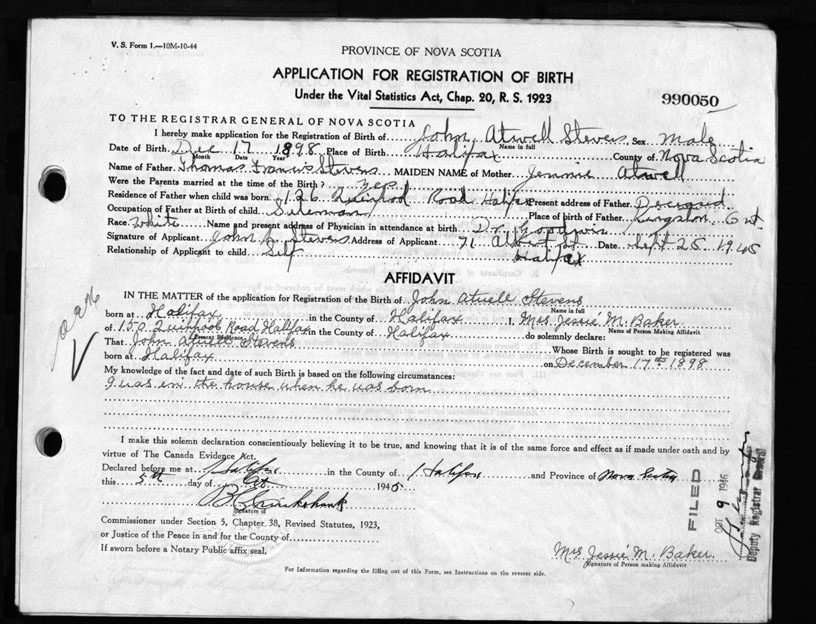 V. S. Form 1.—10M-10-44
PROVINCE OF NOVA SCOTIA
APPLICATION FOR REGISTRATION OF BIRTH
Under the Vital Statistics Act, Chap. 20, R. S. 1923
990050
TO THE REGISTRAR GENERAL OF NOVA SCOTIA
I hereby make application for the Registration of Birth of John Atwell Stevens Sex Male
Name in full
Date of Birth Dec 17 1898 Place of Birth Halifax County of Nova Scotia
Month Date Year
Name of Father Thomas Francis Stevens MAIDEN NAME of Mother Jennie Atwell
Were the Parents married at the time of the Birth? yes
Residence of Father when child was born: 126 Quinpool Road Halifax Present address of Father Deceased
Occupation of Father at Birth of child Place of birth of Father Kingston
Race White Name and present address of Physician in attendance at birth Dr. Goodwin
Signature of Applicant John A. Stevens Address of Applicant 71 St. Date Sept 25 1945
Relationship of Applicant to child Self Halifax
AFFIDAVIT
IN THE MATTER of the application for Registration of the Birth of John Atwell Stevens
Name in full
born at Halifax in the County of Halifax I, Mrs Jessie M. Baker
Name of Person Making Affidavit
of 150 Quinpool Road Halifax in the County of Halifax do solemnly declare:
That John Atwell Stevens Whose Birth is sought to be registered was
born at Halifax on December 17th 1898
My knowledge of the fact and date of such Birth is based on the following circumstances:
I was in the house when he was born
I make this solemn declaration conscientiously believing it to be true, and knowing that it is of the same force and effect as if made under oath and by
virtue of The Canada Evidence Act.
Declared before me at Halifax in the County of Halifax and Province of Nova Scotia
this 5th day of Oct 1945
Signature of
Commissioner under Section 5, Chapter 38, Revised Statutes, 1923,
or Justice of the Peace in and for the County of
If sworn before a Notary Public affix seal.
Mrs Jessie M. Baker
Signature of Person making Affidavit
For Information regarding the filling out of this Form, see Instructions on the reverse side.
FILED
OCT 9 1946
Deputy Registrar General